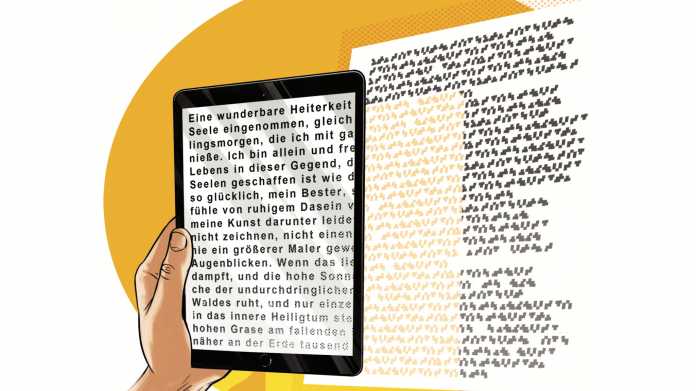 Eine wunderbare Heiterkeit
Seele eingenommen, gleich
lingsmorgen, die ich mit ga
nieße. Ich bin allein und fre
Lebens in dieser Gegend, d
Seelen geschaffen ist wie d
so glücklich, mein Bester, s
fühle von ruhigem Dasein v
meine Kunst darunter leide
nicht zeichnen, nicht einen
nie ein größerer Maler gewe
Augenblicken. Wenn das lie
dampft, und die hohe Sonn
che der undurchdringlicher
Waldes ruht, und nur einze
in das innere Heiligtum ste
hohen Grase am fallenden
näher an der Erde tausend